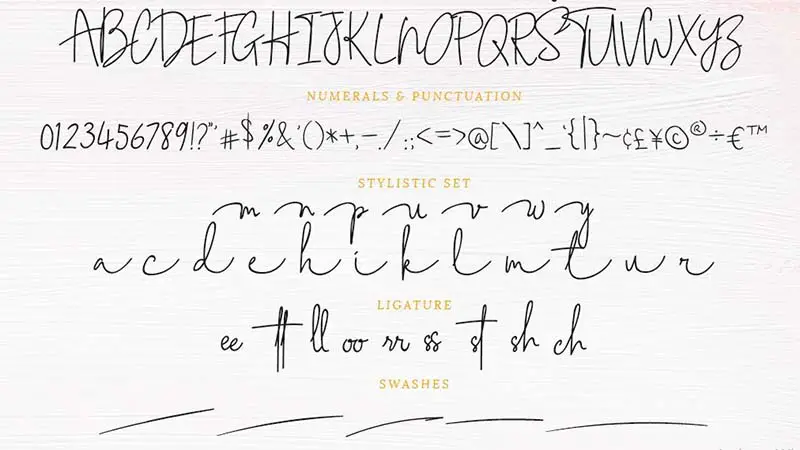 ABCDEFGHIJKLMNOPQRSTUVWXYZ
NUMERALS & PUNCTUATION
0123456789!?"'#$%&'()*+,-./:;<=>@[\]^_`{|}~¢£¥©®÷€™
STYLISTIC SET
m n p u v w y
a c d e h i k l m t u r
LIGATURE
ee tt ll oo rr ss st sh ch
SWASHES